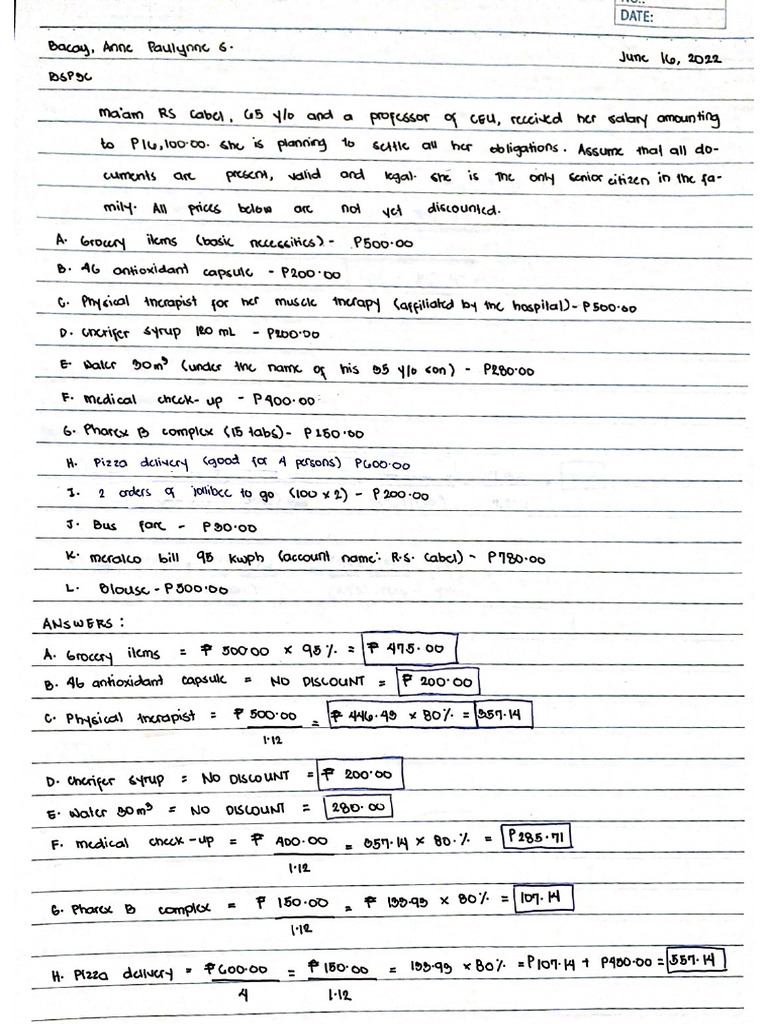 DATE:
Bacay, Anne Paulynne G.
June 16, 2022
BSP3C
Ma'am RS Cabel, 65 y/o and a professor of CEU, received her salary amounting
to P16,100.00. She is planning to settle all her obligations. Assume that all do-
cuments are present, valid and legal. She is the only senior citizen in the fa-
mily. All prices below are not yet discounted.
A. Grocery items (basic necessities) - P500.00
B. 4G antioxidant capsule - P200.00
C. Physical therapist for her muscle therapy (affiliated by the hospital) - P500.00
D. Cherifer syrup 120 mL - P200.00
E. Water 30m³ (under the name of his 35 y/o son) - P280.00
F. Medical check-up - P400.00
G. Pharex B complex (15 tabs) - P150.00
H. Pizza delivery (good for 4 persons) P600.00
I. 2 orders of jollibee to go (100 x 2) - P200.00
J. Bus fare - P30.00
K. Meralco bill 95 kwph (account name: R.S. Cabel) - P780.00
L. Blouse - P300.00
ANSWERS:
A. Grocery items = ₱ 500.00 x 95% = ₱ 475.00
B. 4G antioxidant capsule = NO DISCOUNT = ₱ 200.00
C. Physical therapist = ₱ 500.00 = ₱ 446.43 x 80% = 357.14
1.12
D. Cherifer syrup = NO DISCOUNT = ₱ 200.00
E. Water 30m³ = NO DISCOUNT = 280.00
F. Medical check-up = ₱ 400.00 = 357.14 x 80.% = P285.71
1.12
G. Pharex B complex = ₱ 150.00 = ₱ 133.93 x 80% = 107.14
1.12
H. Pizza delivery = ₱600.00 = ₱150.00 = 133.93 x 80% = P107.14 + P450.00 = 557.14
4 1.12